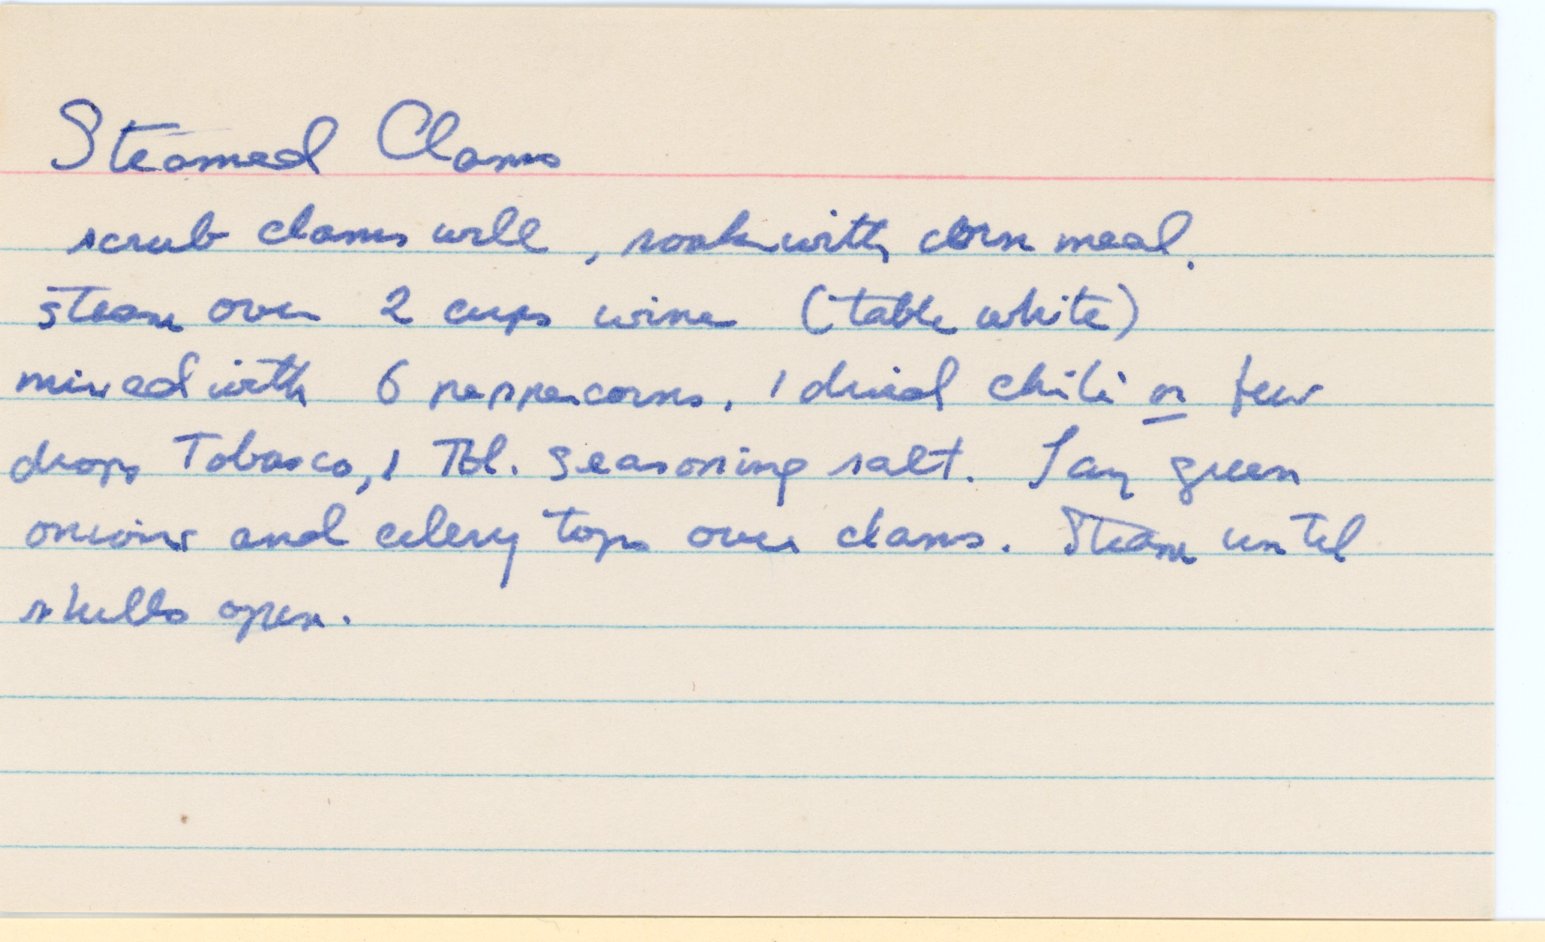 Steamed Clams
scrub clams well, soak with corn meal.
steam over 2 cups wine (table white)
mixed with 6 peppercorns, 1 dried chili or few
drops Tobasco, 1 Tbl. seasoning salt. Lay green
onions and celery tops over clams. Steam until
shells open.